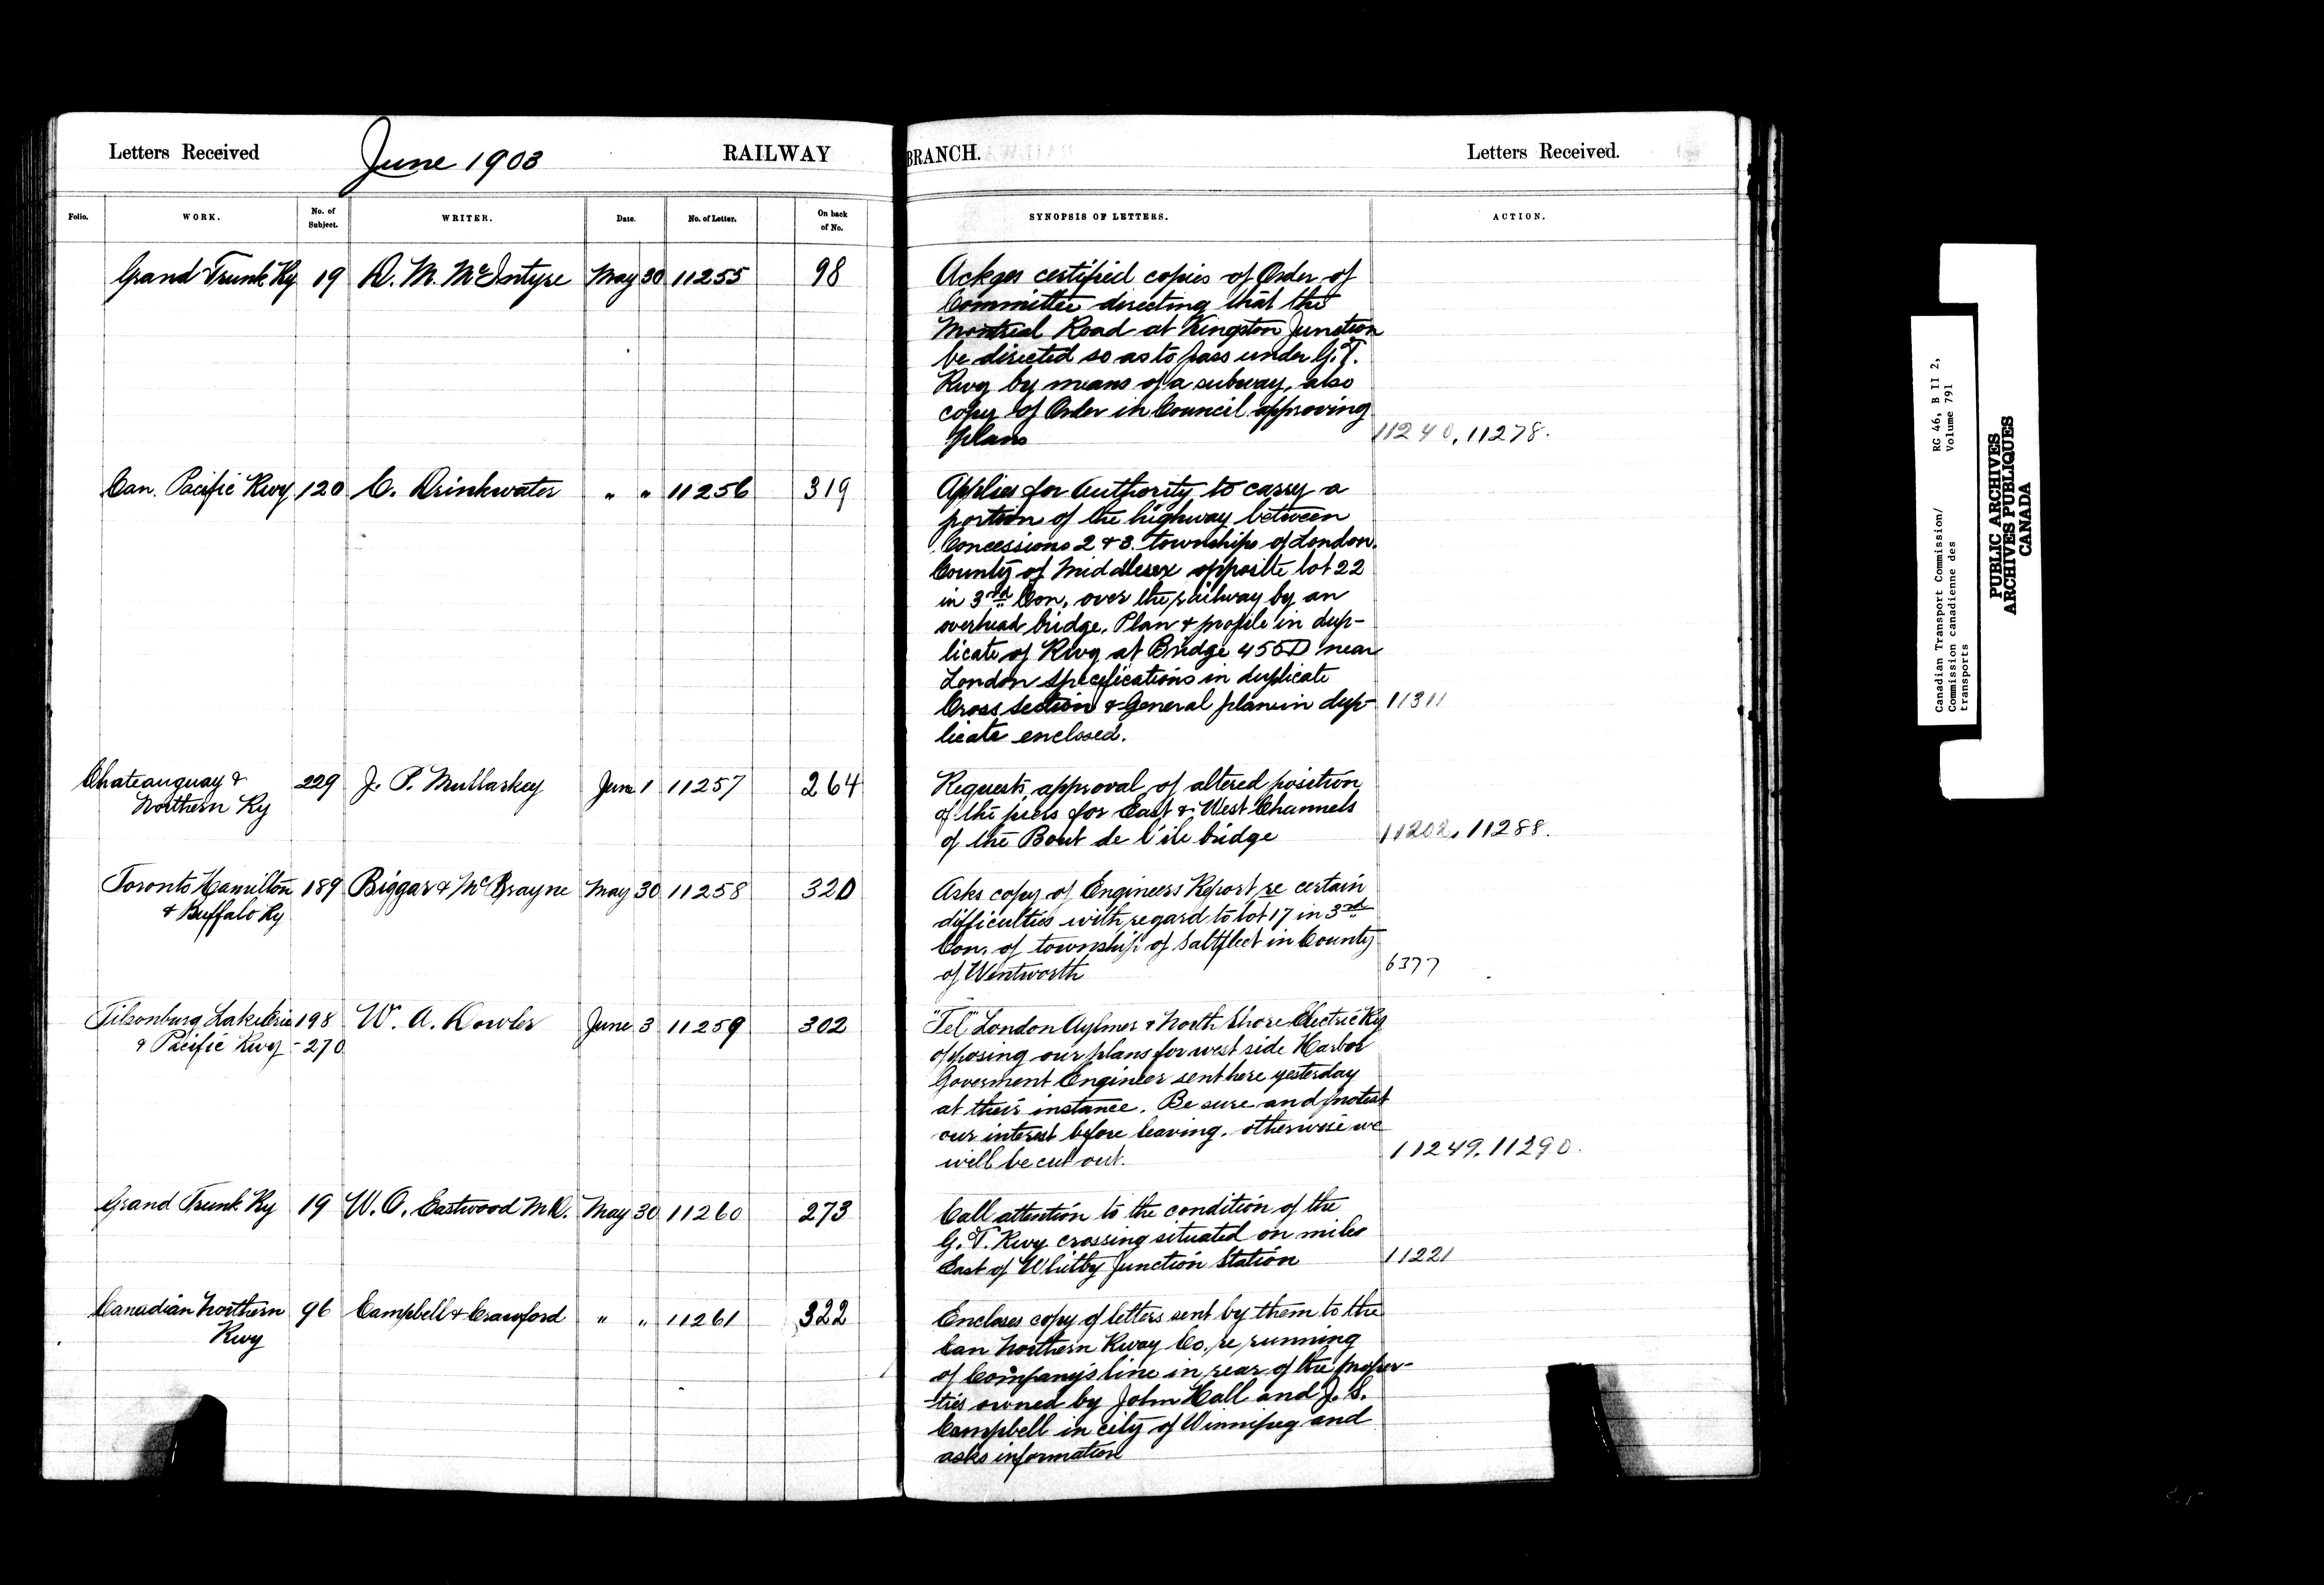 Letters Received
June 1903
RAILWAY
BRANCH.
Letters Received.
Folio.
WORK.
No. of Subject.
WRITER.
Date.
No. of Letter.
On back of No.
SYNOPSIS OF LETTERS.
ACTION.
Grand Trunk Ry 19 D. M. McIntyre May 30 11255 98
Ackges certified copies of Order of
Committee directing that the
Montreal Road at Kingston Junction
be directed so as to pass under G.T.
Rwy by means of a subway, also
copy of Order in Council approving
plans 11240, 11278.
Can. Pacific Rwy 120 C. Drinkwater " " 11256 319
Applies for Authority to carry a
portion of the highway between
Concessions 2 & 3. townships of London.
County of Middlesex opposite lot 22
in 3rd Con, over the railway by an
overhead bridge. Plan & profile in dup-
licate of Rwy at Bridge 455D near
London Specifications in duplicate
Cross section & General plan in dup- 11311
licate enclosed.
Chateauguay & 229 J. P. Mullarkey June 1 11257 264
Northern Ry
Requests approval of altered position
of the piers for East & West Channels
of the Bout de l'ile bridge 11202, 11288.
Toronto Hamilton 189 Biggar & McBrayne May 30 11258 320
& Buffalo Ry
Asks copy of Engineers Report re certain
difficulties with regard to lot 17 in 3rd
Con. of township of Saltfleet in County
of Wentworth 6377
Tilsonburg Lake Erie 198 W. A. Dowler June 3 11259 302
& Pacific Rwy - 270
"Tel" London Aylmer & North Shore Electric Ry
opposing our plans for west side Harbor
Goverment Engineer sent here yesterday
at their instance. Be sure and protect
our interest before leaving. otherwise we
will be cut out. 11249, 11290.
Grand Trunk Ry 19 W. O. Eastwood M.D. May 30 11260 273
Call attention to the condition of the
G. T. Rwy crossing situated on miles
East of Whitby Junction Station 11221
Canadian Northern 96 Campbell & Crawford " " 11261 322
Rwy
Encloses copy of letters sent by them to the
Can Northern Rway Co., re running
of Company's line in rear of the proper-
-ties owned by John Hall and J. S.
Campbell in city of Winnipeg and
asks information
Canadian Transport Commission/
Commission canadienne des
transports
RG 46, B II 2,
Volume 791
PUBLIC ARCHIVES
ARCHIVES PUBLIQUES
CANADA